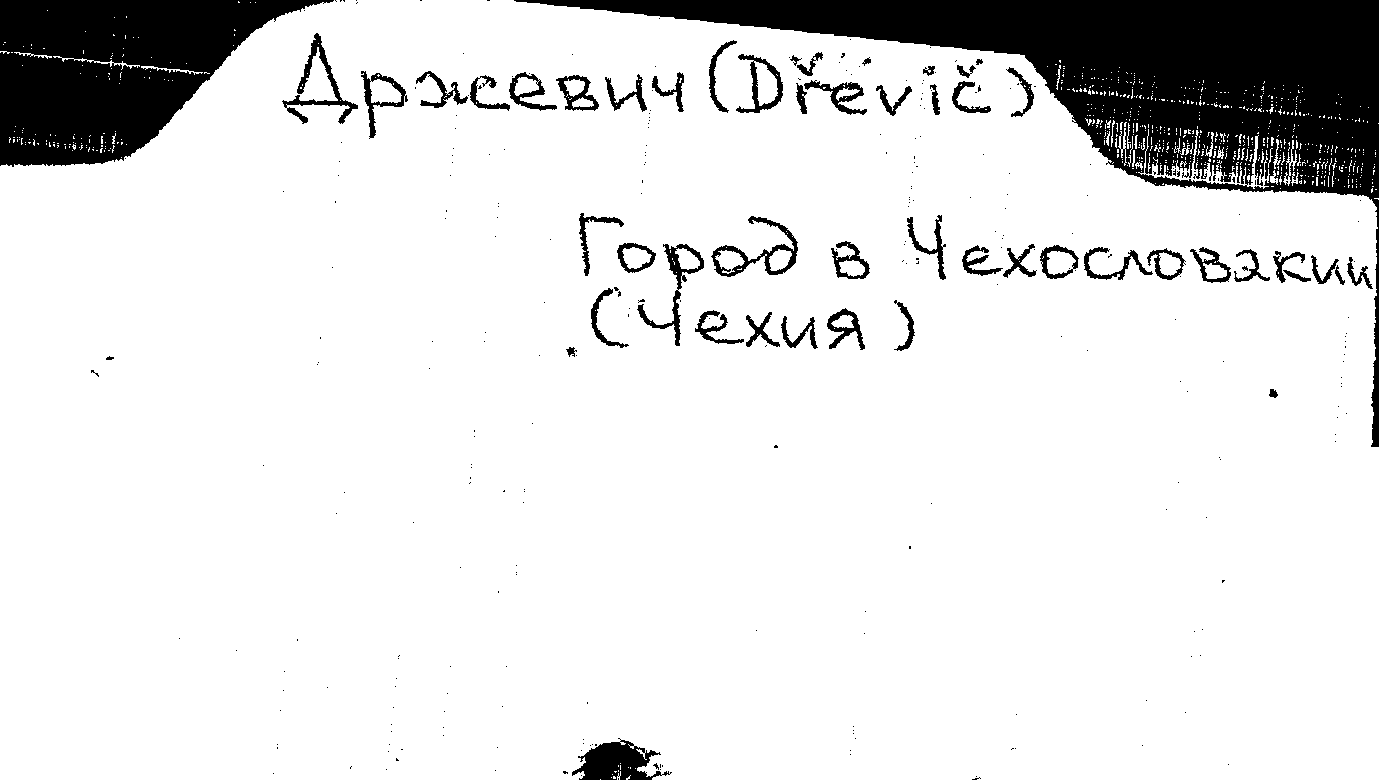 Држевич (Dřevič)
Город в Чехословакии
(Чехия)